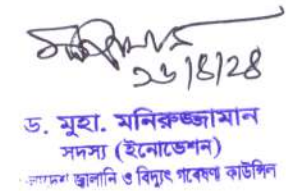 ২৬/৪/২৪
ড. মুহা. মনিরুজ্জামান
সদস্য (ইনোভেশন)
জ্বালানি ও বিদ্যুৎ গবেষণা কাউন্সিল